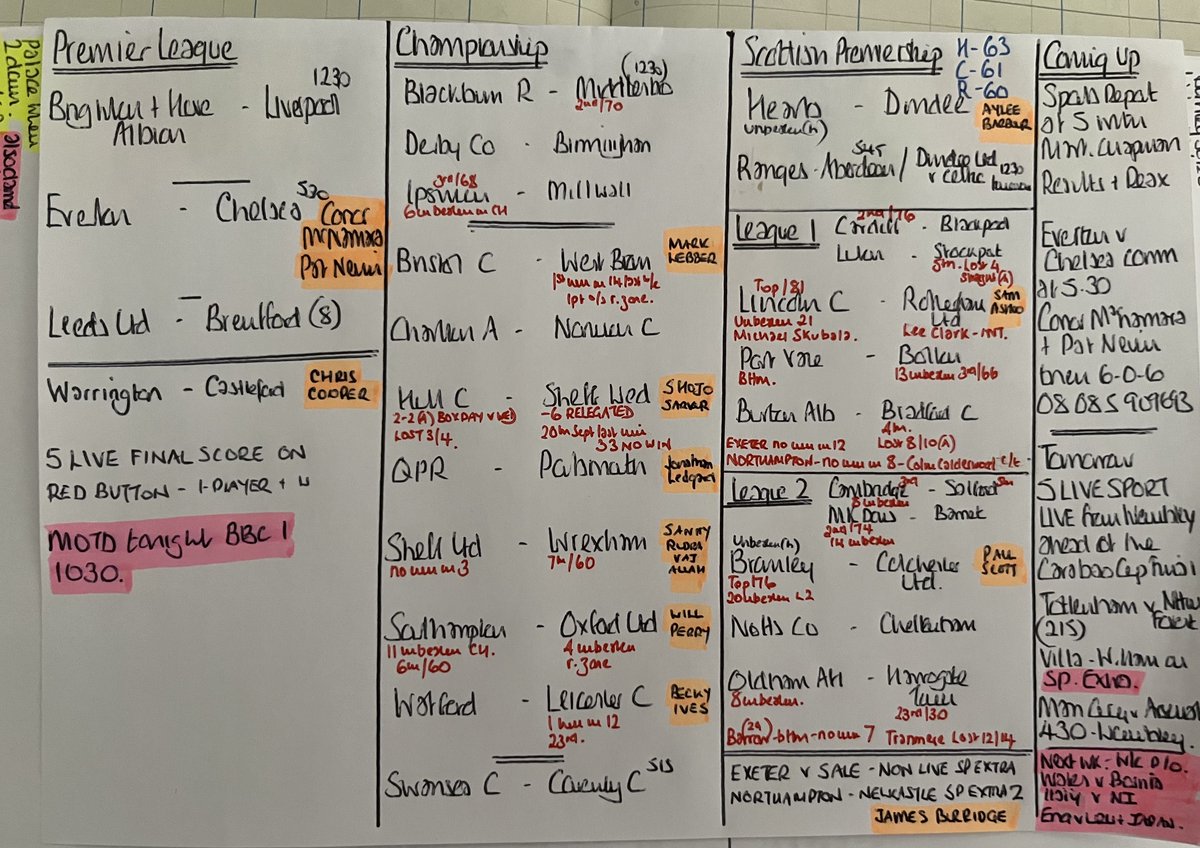 Palace when
2 down.
also and
Premier League
1230
Brighton + Hove - Liverpool
Albion
530
Everton - Chelsea
Conor
McNamara
Pat Nevin
Leeds Utd - Brentford (8)
Warrington - Castleford
CHRIS
COOPER
5 LIVE FINAL SCORE ON
RED BUTTON - I-PLAYER +
MOTD tonight BBC 1
1030.
Championship
(1230)
Blackburn R - Middlesbro
2nd/70
Derby Co - Birmingham
3rd/68
Ipswich - Millwall
6 unbeaten in CH
Bristol C - West Brom
MARK
WEBBER
1st win in 14, last w/e
1pt o/s r.zone.
Charlton A - Norwich C
Hull C - Sheff Wed
SHOJO
SARKER
2-2 (A) BOX DAY v
LOST 3/4.
-6 RELEGATED
20th Sept last win
33 NO WIN
QPR - Portsmouth
Jonathan
Ledgard
Sheff Utd - Wrexham
no win in 3
7th/60
SANNY
RUDRA
VAJ
ALLAH
Southampton - Oxford Utd
WILL
PERRY
11 unbeaten CH.
6th/60
4 unbeaten
r.zone
Watford - Leicester C
BECKY
IVES
1 win in 12
23rd.
Swansea C - Coventry C 515
Scottish Premiership
H-63
C-61
R-60
Hearts - Dundee
unbeaten (h)
AYLEE
BARBER
545
Rangers - Aberdeen / Dundee Utd
v Celtic 1230
League 1
2nd/76
Cardiff - Blackpool
Luton - Stockport
5th - Lost 4
straight (A)
Top/81
Lincoln C - Rotherham
Utd
SAM
Unbeaten 21
Michael Skubala.
Lee Clark - INT.
Port Vale - Bolton
Bttm.
13 unbeaten 3rd/66
Burton Alb - Bradford C
4th.
Lost 8/10 (A)
EXETER no win in 12
NORTHAMPTON - no win in 8 - Colin Calderwood c/t.
League 2
3rd
Cambridge - Salford 5th
unbeaten
MK Dons - Barnet
2nd/74
14 unbeaten
Unbeaten (h)
Bromley - Colchester
Utd.
PAUL
SCOTT
Top/76
20 unbeaten L2
Notts Co - Cheltenham
Oldham Ath - Harrogate
Town
8 unbeaten.
23rd/30
(24)
Barrow - bttm - no win 7 Tranmere Lost 12/14
EXETER v SALE - NON LIVE SP EXTRA
NORTHAMPTON - NEWCASTLE SP EXTRA 2
JAMES BURRIDGE
Coming Up
Sports Report
at 5 with
Mark Chapman
Results + Reax
Everton v
Chelsea comm
at 5.30
Conor McNamara
+ Pat Nevin
then 6-0-6
08085 909693
Tomorrow
5 LIVE SPORT
LIVE from Wembley
ahead of the
Carabao Cup Final
Tottenham v Nottm
Forest
(215)
Villa - W. Ham on
SP. Extra.
Man City v Arsenal
430 - Wembley.
Next Wk - WC P/O.
Wales v Bosnia
Italy v NI
England + JAPAN.